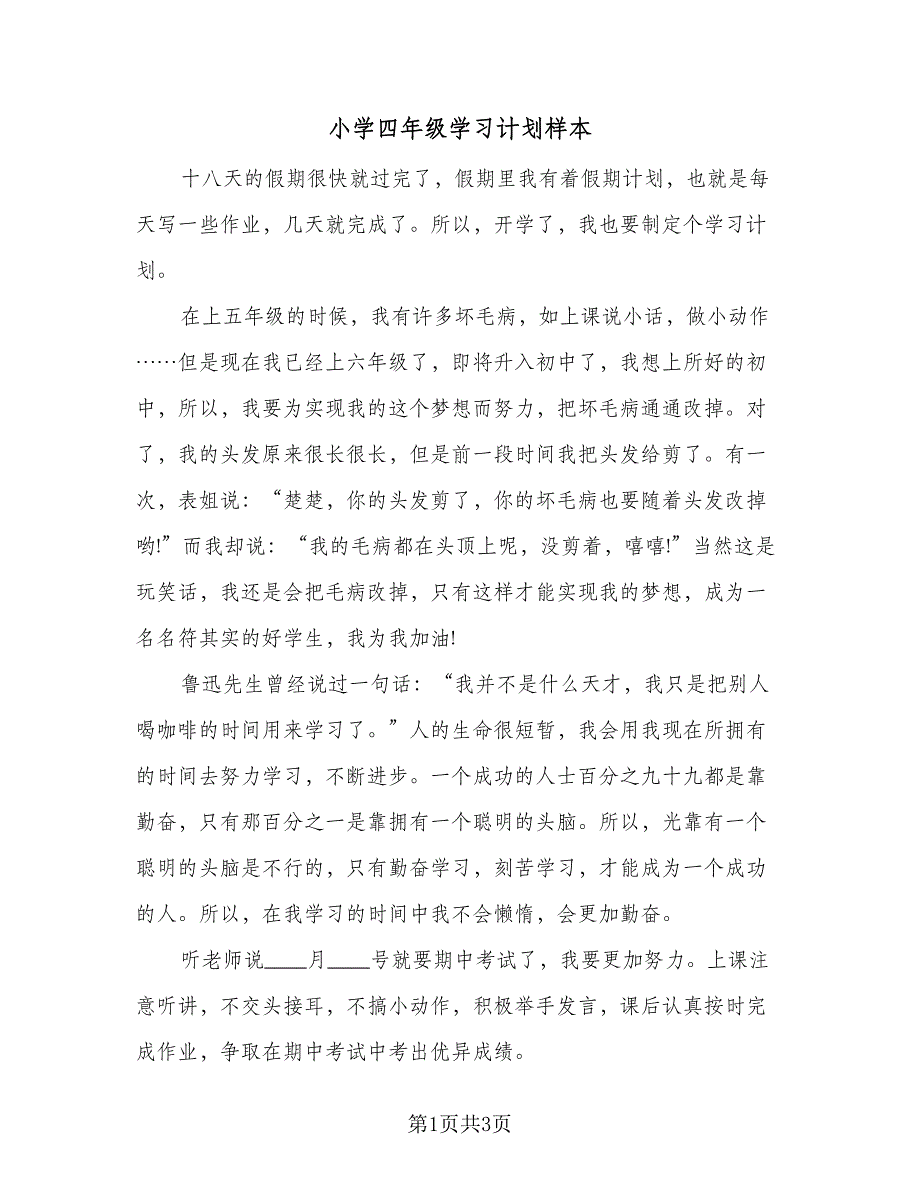 小学四年级学习计划样本
十八天的假期很快就过完了，假期里我有着假期计划，也就是每
天写一些作业，几天就完成了。所以，开学了，我也要制定个学习计
划。
在上五年级的时候，我有许多坏毛病，如上课说小话，做小动作
……但是现在我已经上六年级了，即将升入初中了，我想上所好的初
中，所以，我要为实现我的这个梦想而努力，把坏毛病通通改掉。对
了，我的头发原来很长很长，但是前一段时间我把头发给剪了。有一
次，表姐说：“楚楚，你的头发剪了，你的坏毛病也要随着头发改掉
哟!”而我却说：“我的毛病都在头顶上呢，没剪着，嘻嘻!”当然这是
玩笑话，我还是会把毛病改掉，只有这样才能实现我的梦想，成为一
名名符其实的好学生，我为我加油!
鲁迅先生曾经说过一句话：“我并不是什么天才，我只是把别人
喝咖啡的时间用来学习了。”人的生命很短暂，我会用我现在所拥有
的时间去努力学习，不断进步。一个成功的人士百分之九十九都是靠
勤奋，只有那百分之一是靠拥有一个聪明的头脑。所以，光靠有一个
聪明的头脑是不行的，只有勤奋学习，刻苦学习，才能成为一个成功
的人。所以，在我学习的时间中我不会懒惰，会更加勤奋。
听老师说____月____号就要期中考试了，我要更加努力。上课注
意听讲，不交头接耳，不搞小动作，积极举手发言，课后认真按时完
成作业，争取在期中考试中考出优异成绩。
第1页共3页